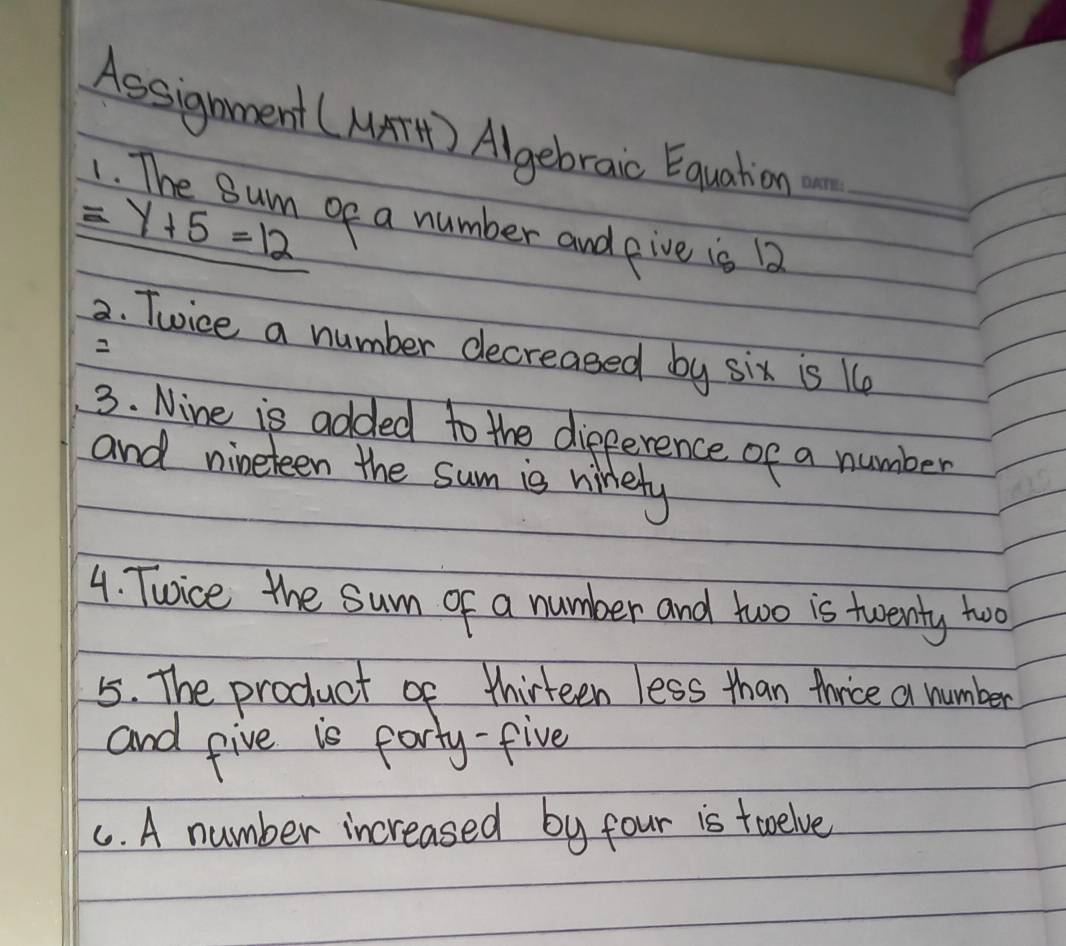 Assignment (MATH) Algebraic Equation DATE:
1. The Sum of a number and five is 12
= Y+5 =12
2. Twice a number decreased by six is 16
=
3. Nine is added to the difference of a number
and nineteen the sum is ninety
4. Twice the sum of a number and two is twenty two
5. The product of thirteen less than thrice a number
and five is forty-five
6. A number increased by four is twelve